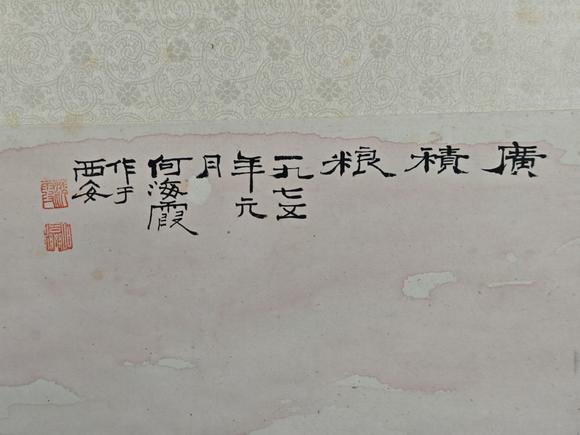 廣積粮
一九七五
年元
月
何海霞
作于
西安